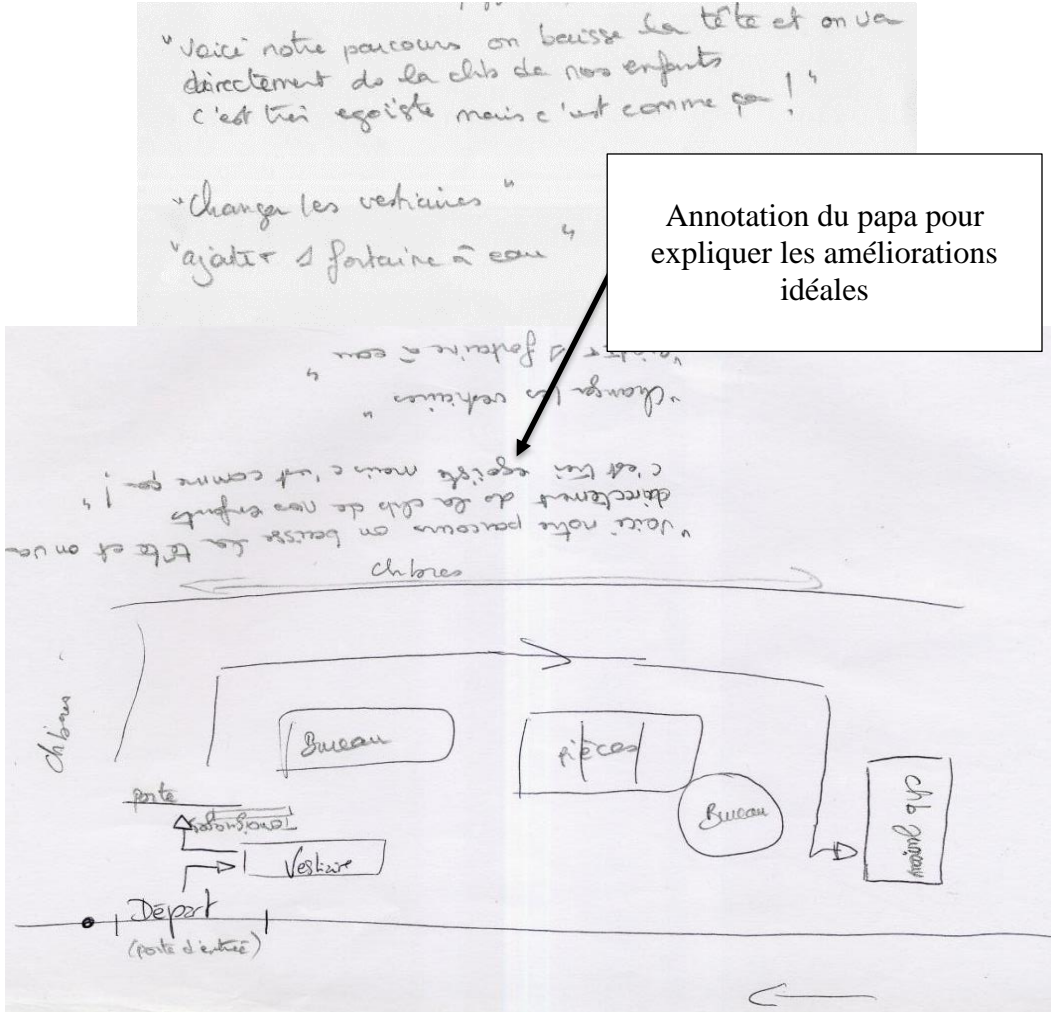 "Voici notre parcours on baisse la tête et on va
directement ds la chb de nos enfants
c'est très egoiste mais c'est comme ça ! "
"Changer les vestiaires "
"ajouter 1 fontaine à eau "
Annotation du papa pour
expliquer les améliorations
idéales
"ajouter 1 fontaine à eau "
"Changer les vestiaires "
c'est très egoiste mais c'est comme ça ! "
directement ds la chb de nos enfants
"Voici notre parcours on baisse la tête et on va
chbres
chbres
Bureau
pièces
Bureau
chb
porte
Vestiaire
Départ
(porte d'entrée)